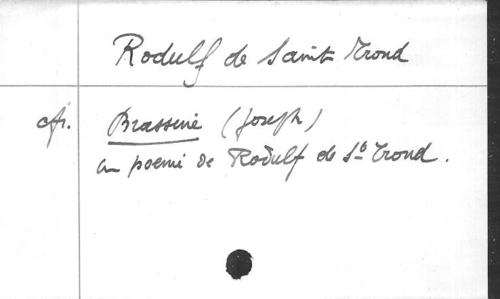 Rodulf de Saint Trond
cfr. Brassine (Joseph)
un poème de Rodulf de St Trond.